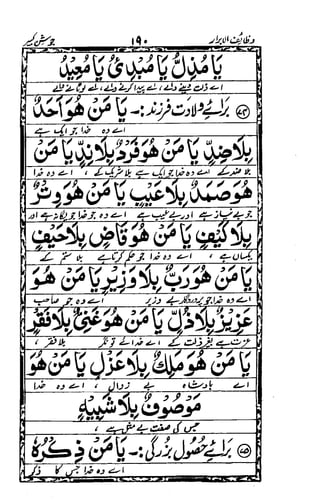 وظائف الابرار ۱۹۰ جوشن کبیر
يَا مُذِلُّ يَا مُبْدِئُ يَا مُعِيْدُ
اے ذلت دینے والے، اے پیدا کرنے والے، اے لوٹانے والے
برائے ولادت فرزند :- يَا مَنْ هُوَ اَحَدٌ
اے وہ خدا جو ایک ہے
بِلَا ضِدٍّ يَا مَنْ هُوَ فَرْدٌ بِلَا نِدٍّ يَا مَنْ
بلا ضد کے، اے وہ خدا جو ایک ہے بلا شریک کے، اے وہ خدا
هُوَ صَمَدٌ بِلَا عَيْبٍ يَا مَنْ هُوَ وِتْرٌ
جو بے نیاز ہے اور بے عیب ہے اے وہ خدا جو یگانہ ہے اور
بِلَا كَيْفٍ يَا مَنْ هُوَ قَاضٍ بِلَا حَيْفٍ
یکساں ہے، اے وہ خدا جو حکم کرتا ہے بلا ستم کے
يَا مَنْ هُوَ رَبٌّ بِلَا وَزِيْرٍ يَا مَنْ هُوَ
اے وہ خدا جو پروردگار ہے بے وزیر، اے وہ جو صاحب
عَزِيْزٌ بِلَا ذُلٍّ يَا مَنْ هُوَ غَنِيٌّ بِلَا فَقْرٍ
عزت ہے بغیر ذلت کے، اے خدا ئے تونگر بلا فقر،
يَا مَنْ هُوَ مَلِكٌ بِلَا عَزْلٍ يَا مَنْ هُوَ
اے بادشاہ بے زوال، اے وہ خدا
مَوْصُوْفٌ بِلَا شَبِيْهٍ
جس کی صفت بے مثل ہے،
برائے حصول بزرگی :- يَا مَنْ ذِكْرُهٗ
اے وہ خدا جس کا ذکر